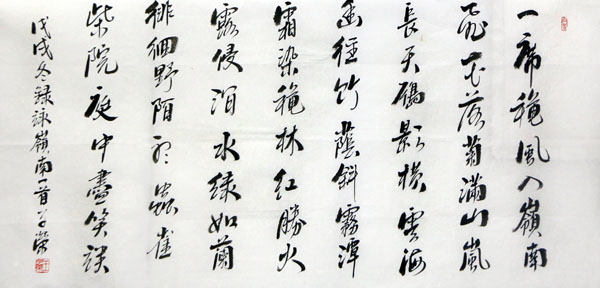 一席穐風入嶺南
飛花落菊滿山嵐
長天鴈影横雲海
幽徑竹蔭斜霧潭
霜染穐林紅勝火
露侵水綠如蘭
徘徊野陌蟲雀
柴院庭中盡笑談
戊戌冬録詠嶺南一首